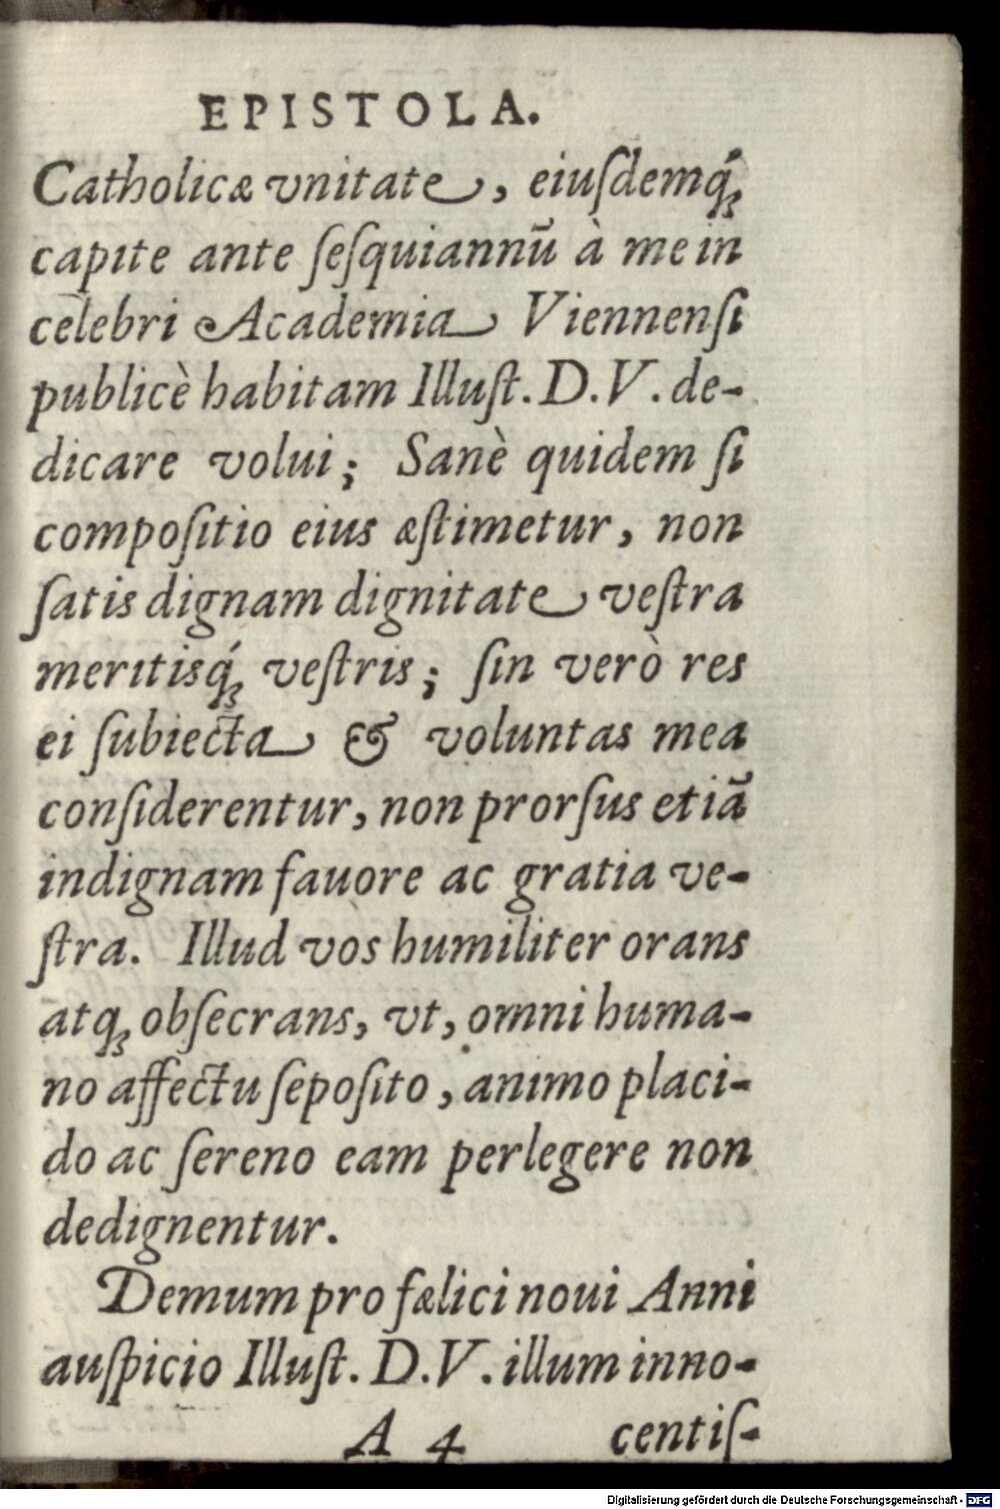 EPISTOLA.
Catholicæ vnitate, eiuſdemq́;
capite ante ſeſquiannũ à me in
celebri Academia Viennenſi
publicè habitam Illuſt. D.V. de-
dicare volui; Sanè quidem ſi
compoſitio eius æſtimetur, non
ſatis dignam dignitate veſtra
meritisq́; veſtris; ſin verò res
ei ſubiecta & voluntas mea
conſiderentur, non prorſus etiã
indignam fauore ac gratia ve-
ſtra. Illud vos humiliter orans
atq; obſecrans, vt, omni huma-
no affectu ſepoſito, animo placi-
do ac ſereno eam perlegere non
dedignentur.
Demum pro fælici noui Anni
auſpicio Illuſt. D.V. illum inno-
A 4 centiſ-
Digitalisierung gefördert durch die Deutsche Forschungsgemeinschaft - DFG